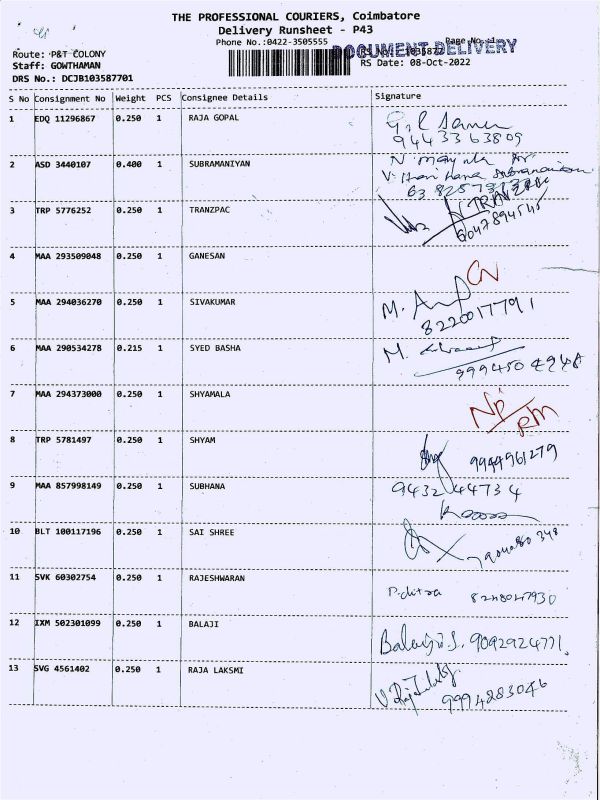 THE PROFESSIONAL COURIERS, Coimbatore
Delivery Runsheet - P43
Phone No.:0422-3505555
Page No.:1
DOCUMENT DELIVERY
Route: P&T COLONY
Staff: GOWTHAMAN
RS Date: 08-Oct-2022
DRS No.: DCJB103587701
S No Consignment No Weight PCS Consignee Details Signature
1 EDQ 11296867 0.250 1 RAJA GOPAL
9443363809
2 ASD 3440107 0.400 1 SUBRAMANIYAN
3 TRP 5776252 0.250 1 TRANZPAC
4 MAA 293509048 0.250 1 GANESAN
CN
5 MAA 294036270 0.250 1 SIVAKUMAR
M.
8220017791
6 MAA 290534278 0.215 1 SYED BASHA
M.
9994504948
7 MAA 294373000 0.250 1 SHYAMALA
8 TRP 5781497 0.250 1 SHYAM
9944961279
9 MAA 857998149 0.250 1 SUBHANA
9432244734
10 BLT 100117196 0.250 1 SAI SHREE
11 SVK 60302754 0.250 1 RAJESHWARAN
12 IXM 502301099 0.250 1 BALAJI
Balaji.S. 9092924771.
13 SVG 4561402 0.250 1 RAJA LAKSMI
9994283046